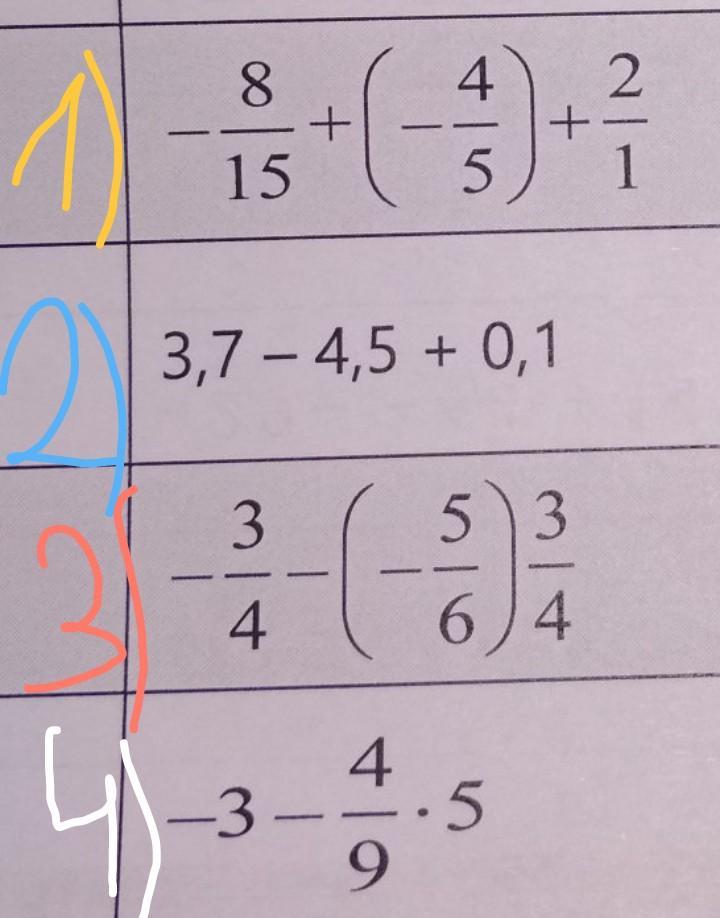 1) -\frac{8}{15}+\left(-\frac{4}{5}\right)+\frac{2}{1}
2) 3,7 – 4,5 + 0,1
3) -\frac{3}{4}-\left(-\frac{5}{6}\right)\frac{3}{4}
4) -3-\frac{4}{9}\cdot 5